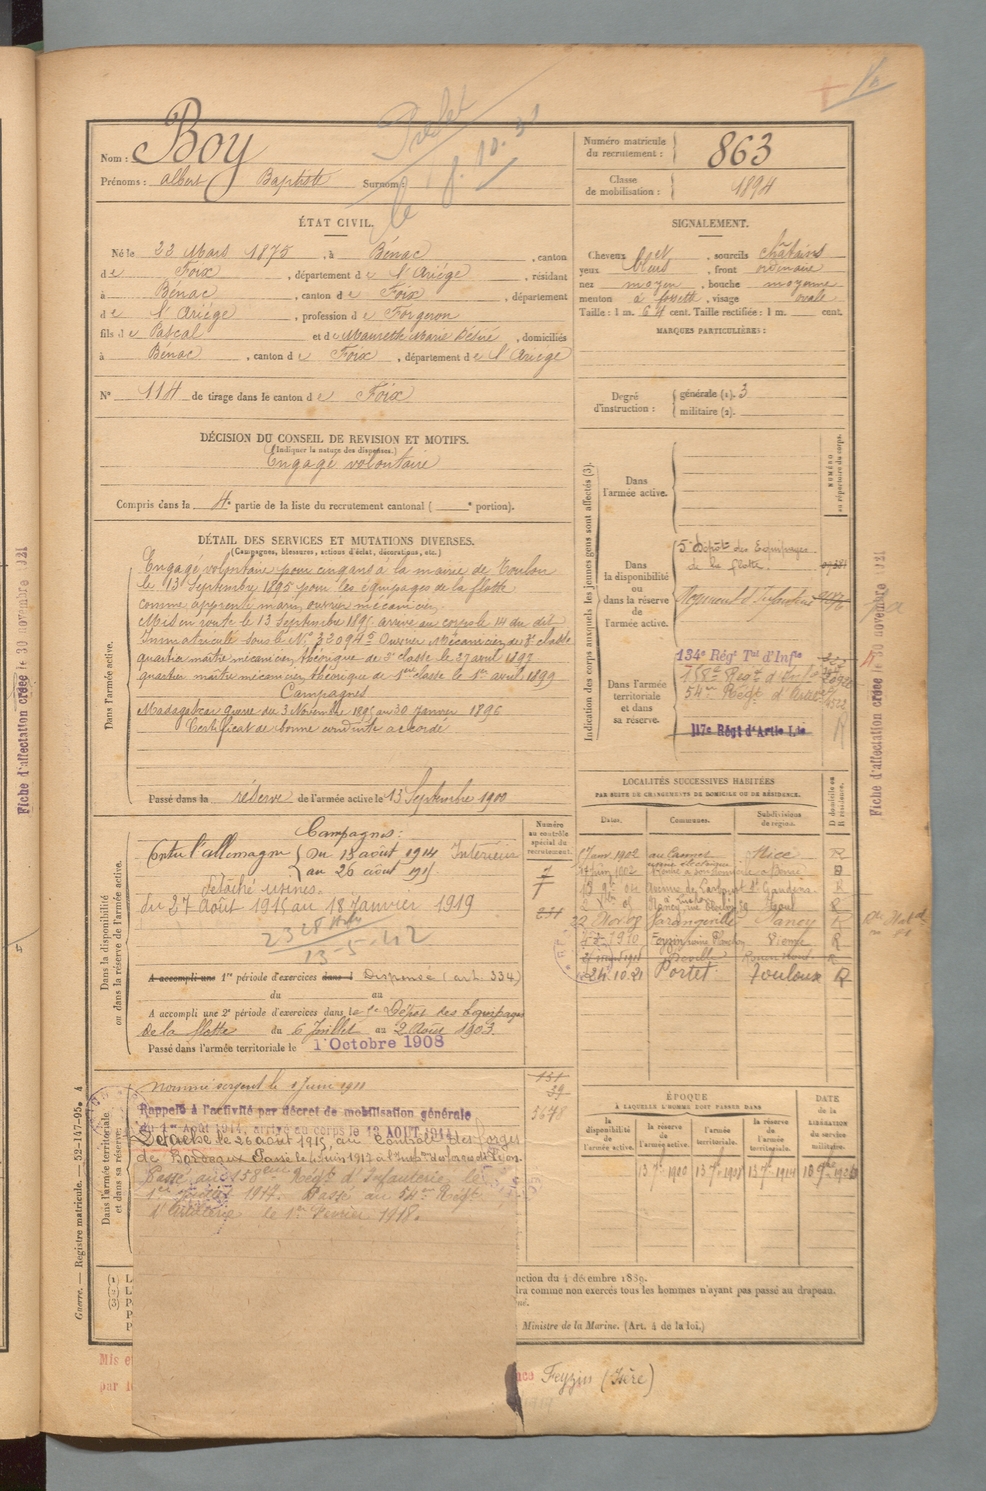 Nom : Boy
Prénoms : albert Baptiste Surnom :
Numéro matricule du recrutement : 863
Classe de mobilisation : 1894
ÉTAT CIVIL.
Né le 22 Mars 1875, à Bénac, canton
de Foix, département de l'Ariège, résidant
à Bénac, canton de Foix, département
de l'Ariège, profession de Forgeron
fils de Pascal et de Marie Désiré, domiciliés
à Bénac, canton de Foix, département de l'Ariège
N° 114 de tirage dans le canton de Foix
DÉCISION DU CONSEIL DE REVISION ET MOTIFS.
(Indiquer la nature des dispenses.)
Engagé volontaire
Compris dans la 4e partie de la liste du recrutement cantonal ( e portion).
SIGNALEMENT.
Cheveux et, sourcils châtains
yeux bleus, front ordinaire
nez moyen, bouche moyenne
menton à fossette, visage ovale
Taille : 1 m. 64 cent. Taille rectifiée : 1 m. cent.
MARQUES PARTICULIÈRES :
Degré d'instruction : générale (1). 3
militaire (2).
DÉTAIL DES SERVICES ET MUTATIONS DIVERSES.
(Campagnes, blessures, actions d'éclat, décorations, etc.)
Dans l'armée active.
Engagé volontaire pour cinq ans à la mairie de Toulon
le 13 Septembre 1895 pour les équipages de la flotte
comme apprenti marin, ouvrier mécanicien.
Mis en route le 13 Septembre 1895 arrivé au corps le 14 du dit
Immatriculé sous le N° 32094 Ouvrier Mécanicien de 3e classe
quartier maître mécanicien théorique de 2e classe le 27 avril 1897
quartier maître mécanicien théorique de 1ère classe le 1er avril 1899
Campagnes
Madagascar guerre du 3 Novembre 1895 au 20 Janvier 1896
Certificat de bonne conduite accordé
Passé dans la réserve de l'armée active le 13 Septembre 1900
Indication des corps auxquels les jeunes gens sont affectés (3).
NUMÉRO au répertoire du corps.
Dans l'armée active.
Dans la disponibilité ou dans la réserve de l'armée active.
5e dépôt des Equipages
de la flotte.
Régiment d'Infanterie
Dans l'armée territoriale et dans sa réserve.
134e Régt Tal d'Infie
158e Régt d'Infie
54me Régt d'Artie
117e Régt d'Artie Lde
Dans la disponibilité ou dans la réserve de l'armée active.
Campagnes :
Contre l'allemagne du 13 août 1914 Intérieur
au 26 août 1915
détaché usines.
du 27 août 1915 au 18 Janvier 1919
13-5-42
A accompli une 1re période d'exercices dans l Dispensé (art. 334)
du au
A accompli une 2e période d'exercices dans le 5e Dépôt des Equipages
de la flotte du 6 Juillet au 2 Août 1903.
Passé dans l'armée territoriale le 1 Octobre 1908
Numéro au contrôle spécial du recrutement.
131
39
3678
LOCALITÉS SUCCESSIVES HABITÉES
PAR SUITE DE CHANGEMENTS DE DOMICILE OU DE RÉSIDENCE.
Dates. Communes. Subdivisions de région. D domicile ou R résidence.
17 janv 1902 au Cannet Nice R
22 Nov 08 Varangeville Nancy R
1910 Feyzin Vienne R
24.10.21 Portet Toulouse R
Dans l'armée territoriale et dans sa réserve.
Nommé sergent le 1 Juin 1911
Rappelé à l'activité par décret de mobilisation générale
du 1er Août 1914, arrivé au corps le 13 AOUT 1914
Détaché le 26 août 1915 au Contrôle des forges
de Bordeaux Passé le 6 juin 1917 à l'Insp. des forges de Lyon.
Passé au 158eme Régt d'Infanterie le
1er juillet 1917. Passé au 54me Régt
d'Artillerie le 1er Février 1918.
ÉPOQUE
À LAQUELLE L'HOMME DOIT PASSER DANS
la disponibilité de l'armée active.
la réserve de l'armée active.
l'armée territoriale.
la réserve de l'armée territoriale.
DATE de la LIBÉRATION du service militaire.
13 7bre 1900
Guerre. — Registre matricule. — 52-147-95. 4
(1)
(2)
(3)
uction du 4 décembre 1889.
tra comme non exercés tous les hommes n'ayant pas passé au drapeau.
Ministre de la Marine. (Art. 4 de la loi.)
Mis e
par l
Feyzin (Isère)
Fiche d'affectation créée le 30 novembre 1921
Fiche d'affectation créée le 30 novembre 1921